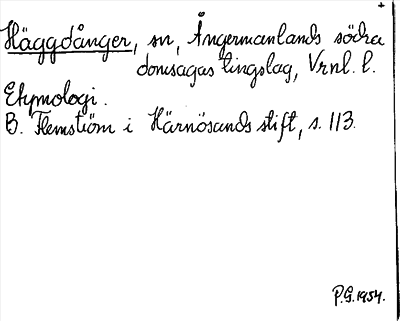 Häggdånger, sn, Ångermanlands södra
domsagas tingslag, Vrnl. l.
Etymologi.
B. Flemström i Härnösands stift, s. 113.
P.G. 1954.